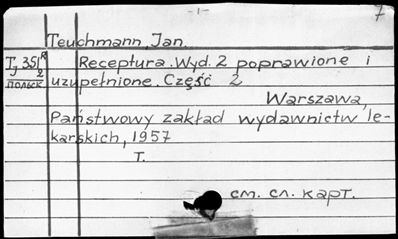 -1-
7
Teuchmann, Jan.
T 35 R
J 2
польск
Receptura. Wyd. 2 poprawione i
uzupełnione. Część 2
Warszawa,
Państwowy zakład wydawnictw le-
karskich, 1957
T.
см. сл. карт.